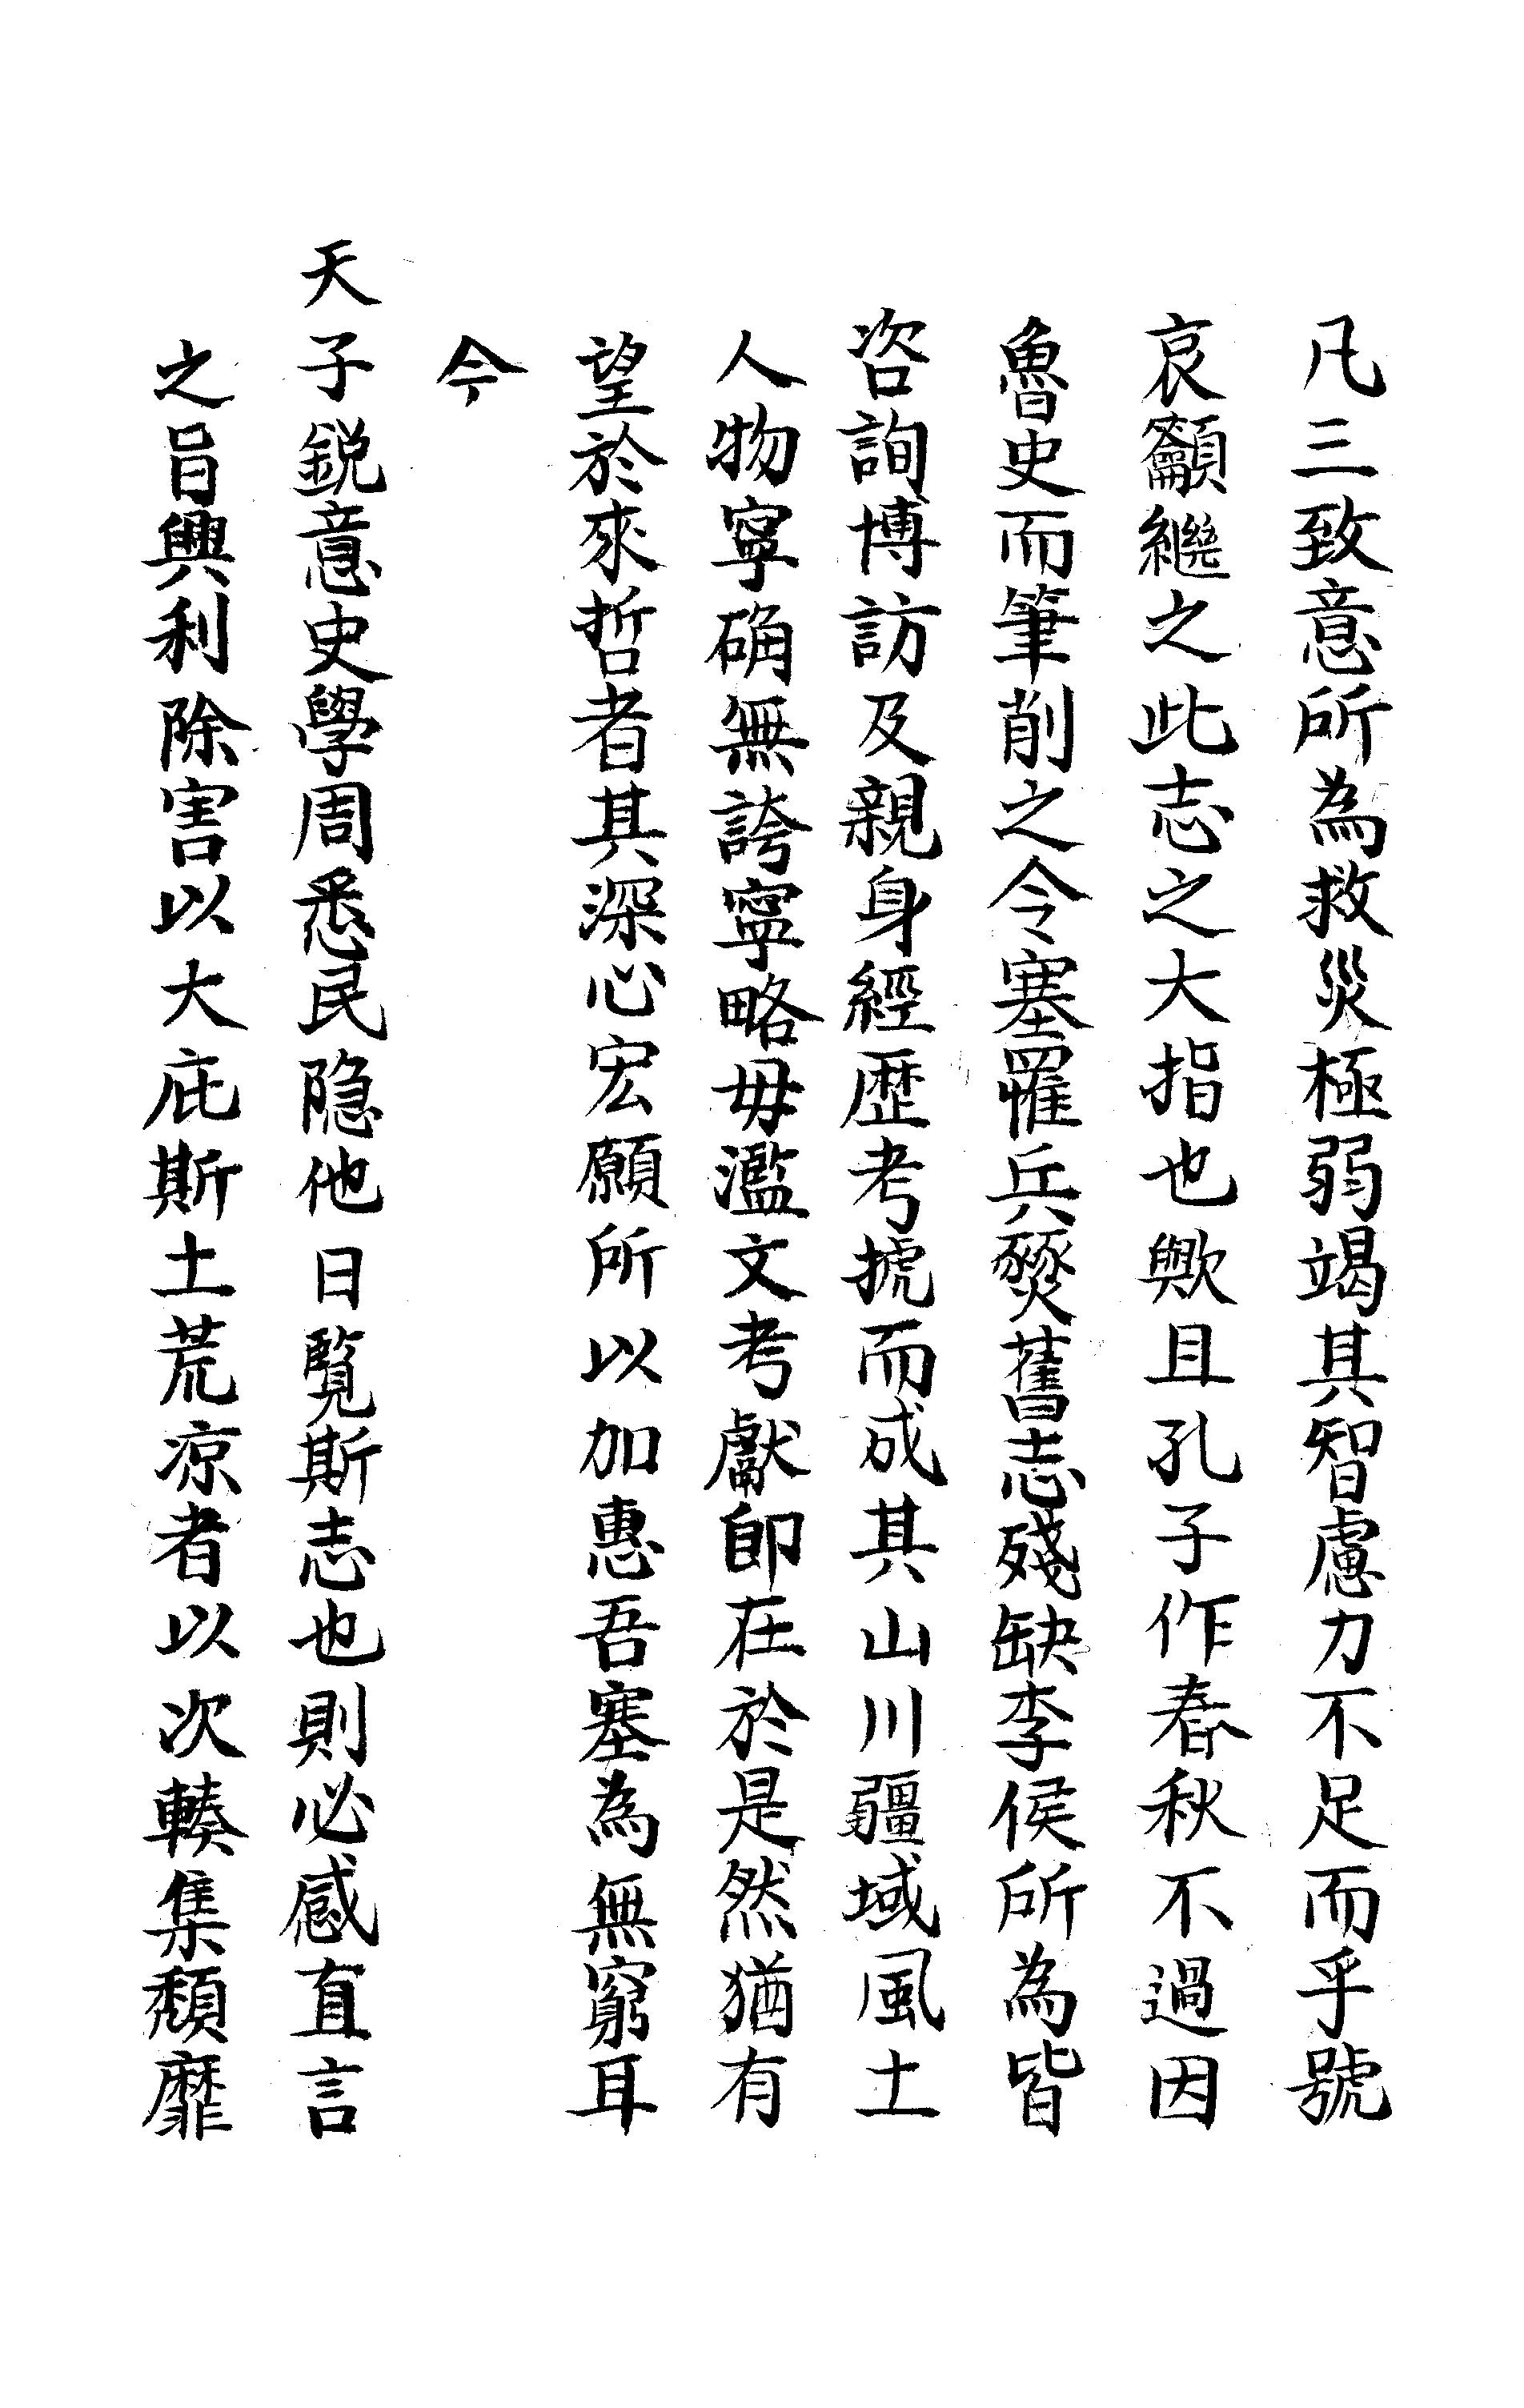 凡三致意所為救災極弱竭其智慮力不足而乎號
哀籲繼之此志之大指也歟且孔子作春秋不過因
魯史而筆削之今塞罹兵燹舊志殘缺李侯所為皆
咨詢博訪及親身經歷考摅而成其山川疆域風土
人物寧确無誇寧略毋濫文考獻即在於是然猶有
望於來哲者其深心宏願所以加惠吾塞為無窮耳
今
天子銳意史學周悉民隐他日覽斯志也則必感直言
之旨興利除害以大庇斯土荒凉者以次輳集頹靡